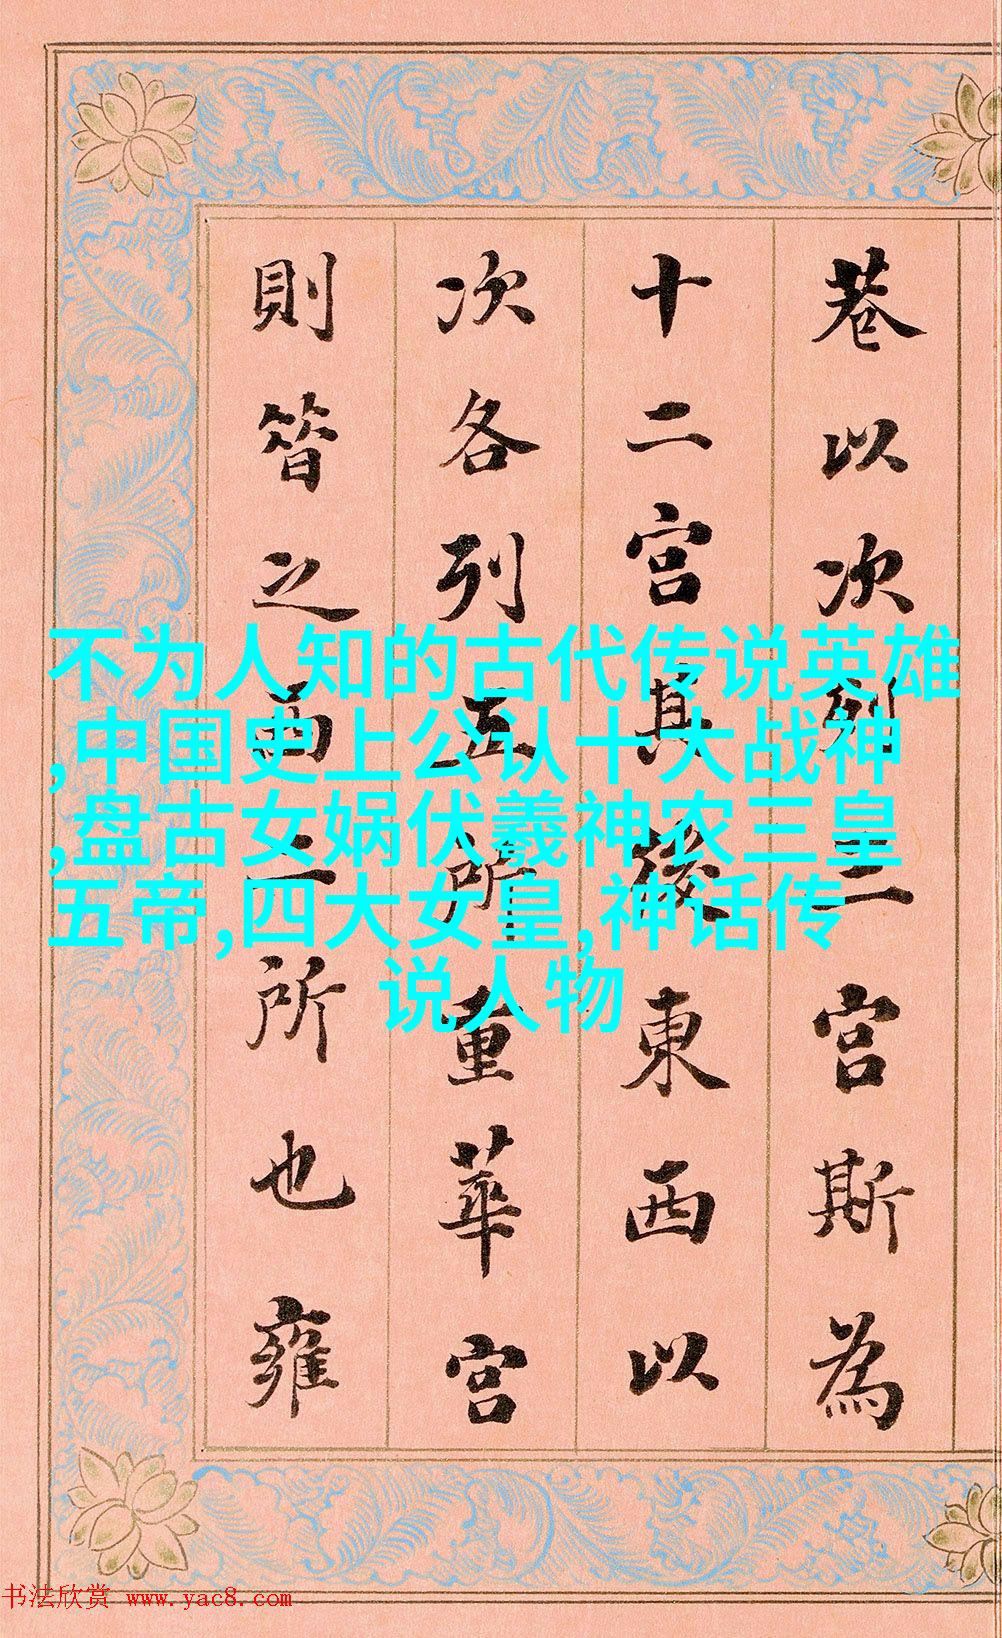 巷以次列三宫斯為
十二宫其後東西以
次各列五所重華宫
則答之西二所也雍
不为人知的古代传说英雄
,中国史上公认十大战神
,盘古女娲伏羲神农三皇
五帝,四大女皇,神话传
说人物
书法欣赏 www.yac8.com